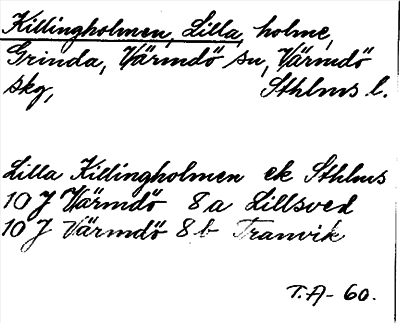 Killingholmen, Lilla, holme,
Grinda, Värmdö sn, Värmdö
skg, Sthlms l.
Lilla Killingholmen ek Sthlms
10 J Värmdö 8 a Lillsved
10 J Värmdö 8 b Tranvik
T.A- 60.